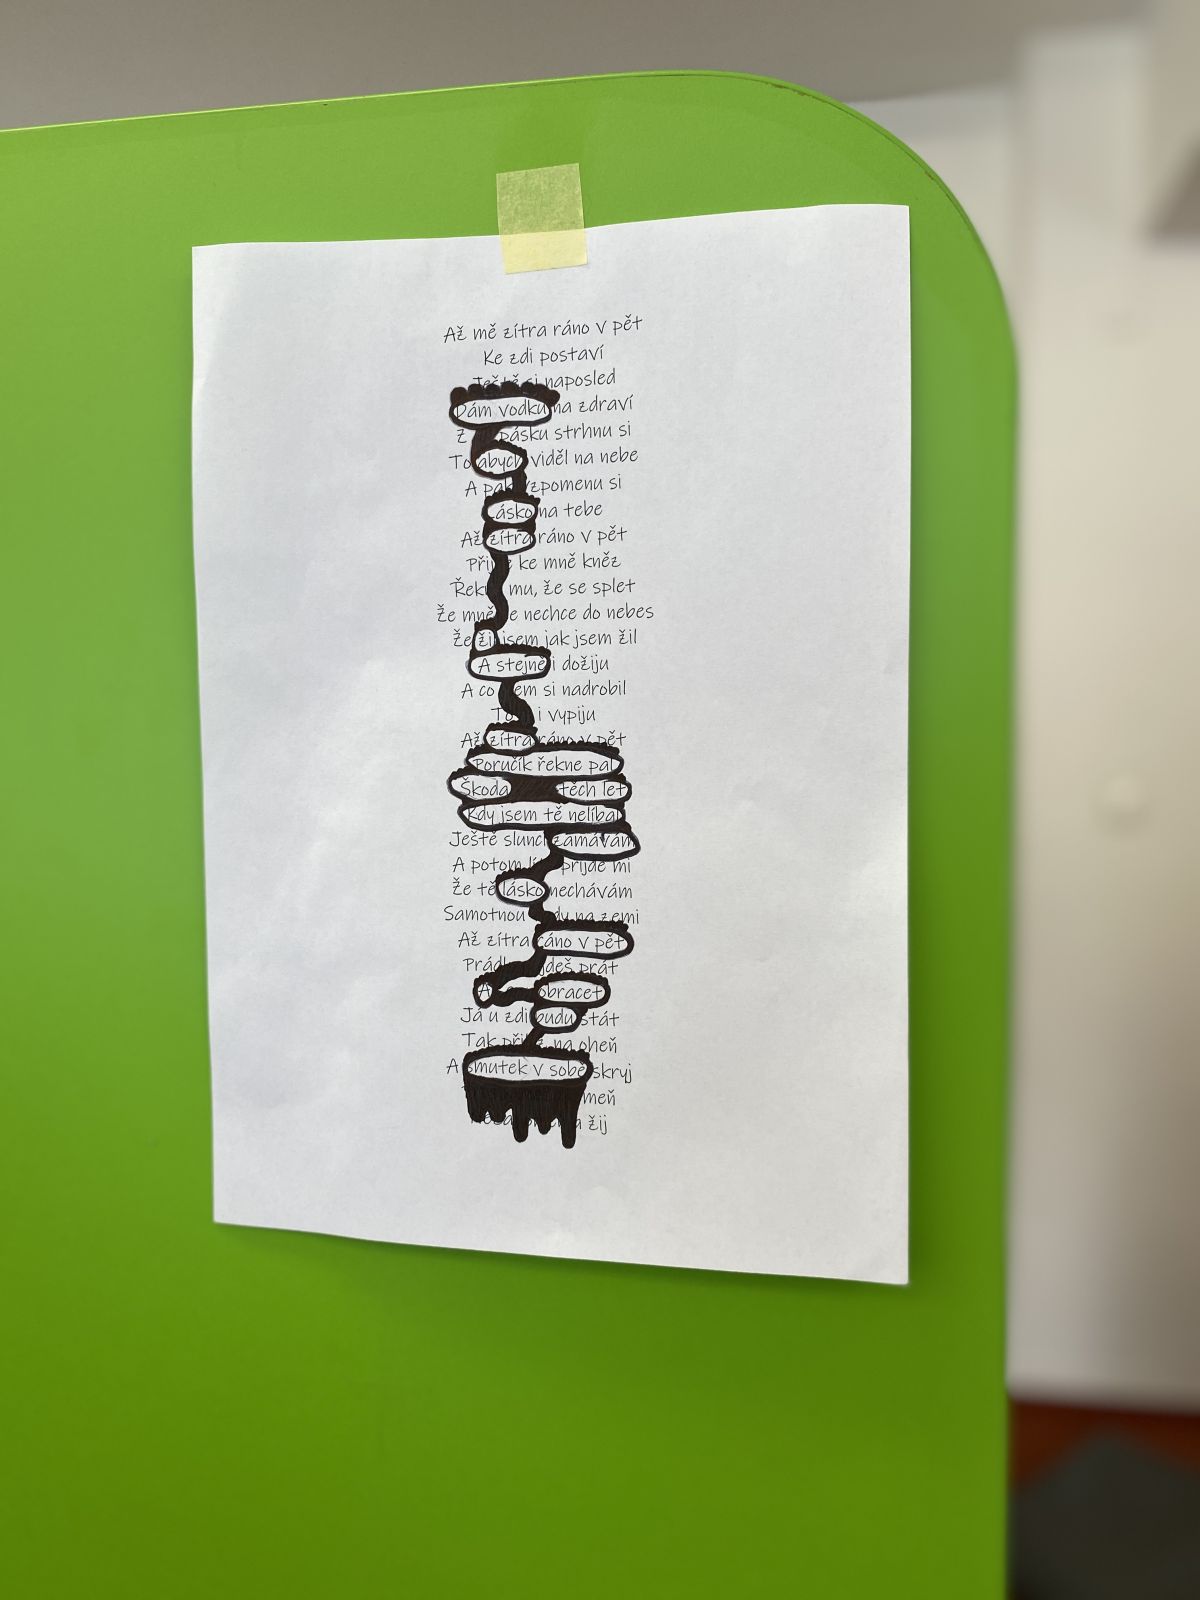 Až mě zítra ráno v pět
Ke zdi postaví
Ještě si naposled
Dám vodku na zdraví
Z pásku strhnu si
To abych viděl na nebe
A pak vzpomenu si
Lásko na tebe
Až zítra ráno v pět
Přijde ke mně kněz
Řeknu mu, že se splet
Že mně se nechce do nebes
Že žil jsem jak jsem žil
A stejně i dožiju
A co jsem si nadrobil
To si i vypiju
Až zítra ráno v pět
Poručík řekne pal
Škoda těch let
Kdy jsem tě nelíbal
Ještě slunci zamávám
A potom líto přijde mi
Že tě lásko nechávám
Samotnou tady na zemi
Až zítra ráno v pět
Prádlo půjdeš prát
A obracet
Já u zdi budu stát
Tak přilož na oheň
A smutek v sobě skryj
žij